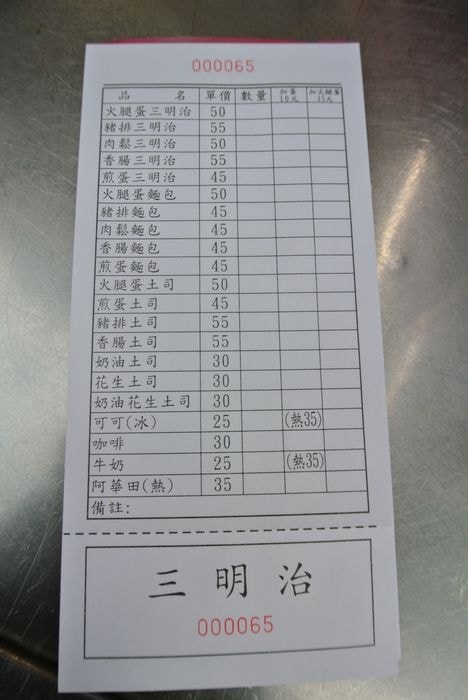 000065
品 名 單價 數量 加蛋10元 加火腿蛋15元
火腿蛋三明治 50
豬排三明治 55
肉鬆三明治 50
香腸三明治 55
煎蛋三明治 45
火腿蛋麵包 50
豬排麵包 45
肉鬆麵包 45
香腸麵包 45
煎蛋麵包 45
火腿蛋土司 50
煎蛋土司 45
豬排土司 55
香腸土司 55
奶油土司 30
花生土司 30
奶油花生土司 30
可可(冰) 25 (熱35)
咖啡 30
牛奶 25 (熱35)
阿華田(熱) 35
備註:
三明治
000065